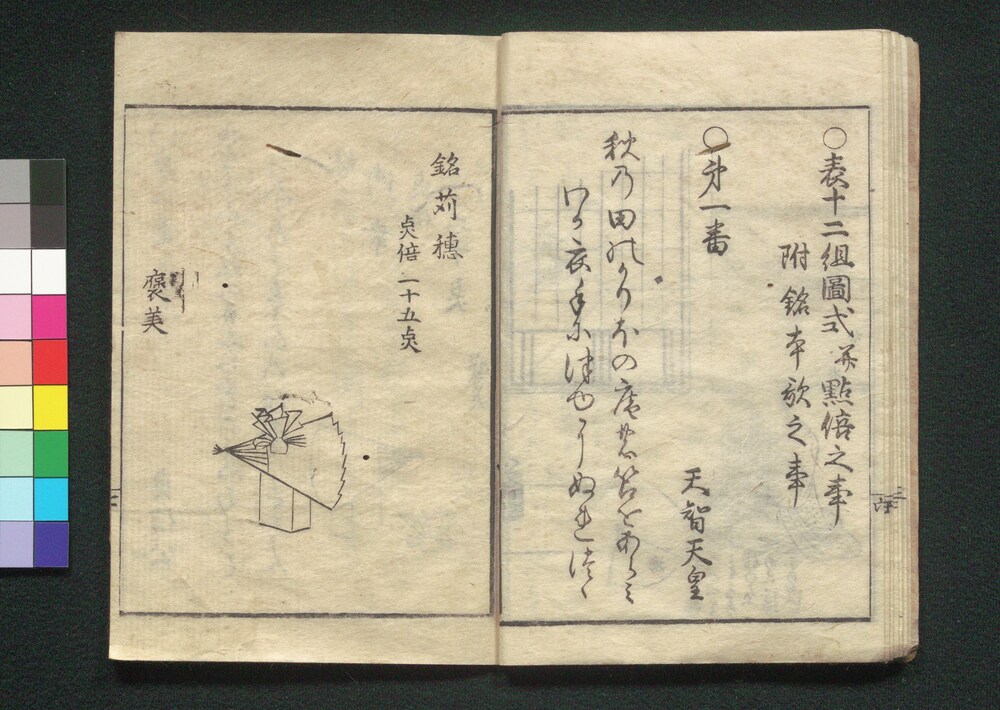 ○表十二組圖式并點倍之事
附銘本歌之事
○第一番
天智天皇
秋乃田のかりほの庵の苫をあらミ
わか衣手に津由にぬれつゝ
銘苅穂
点倍二十五点
褒美